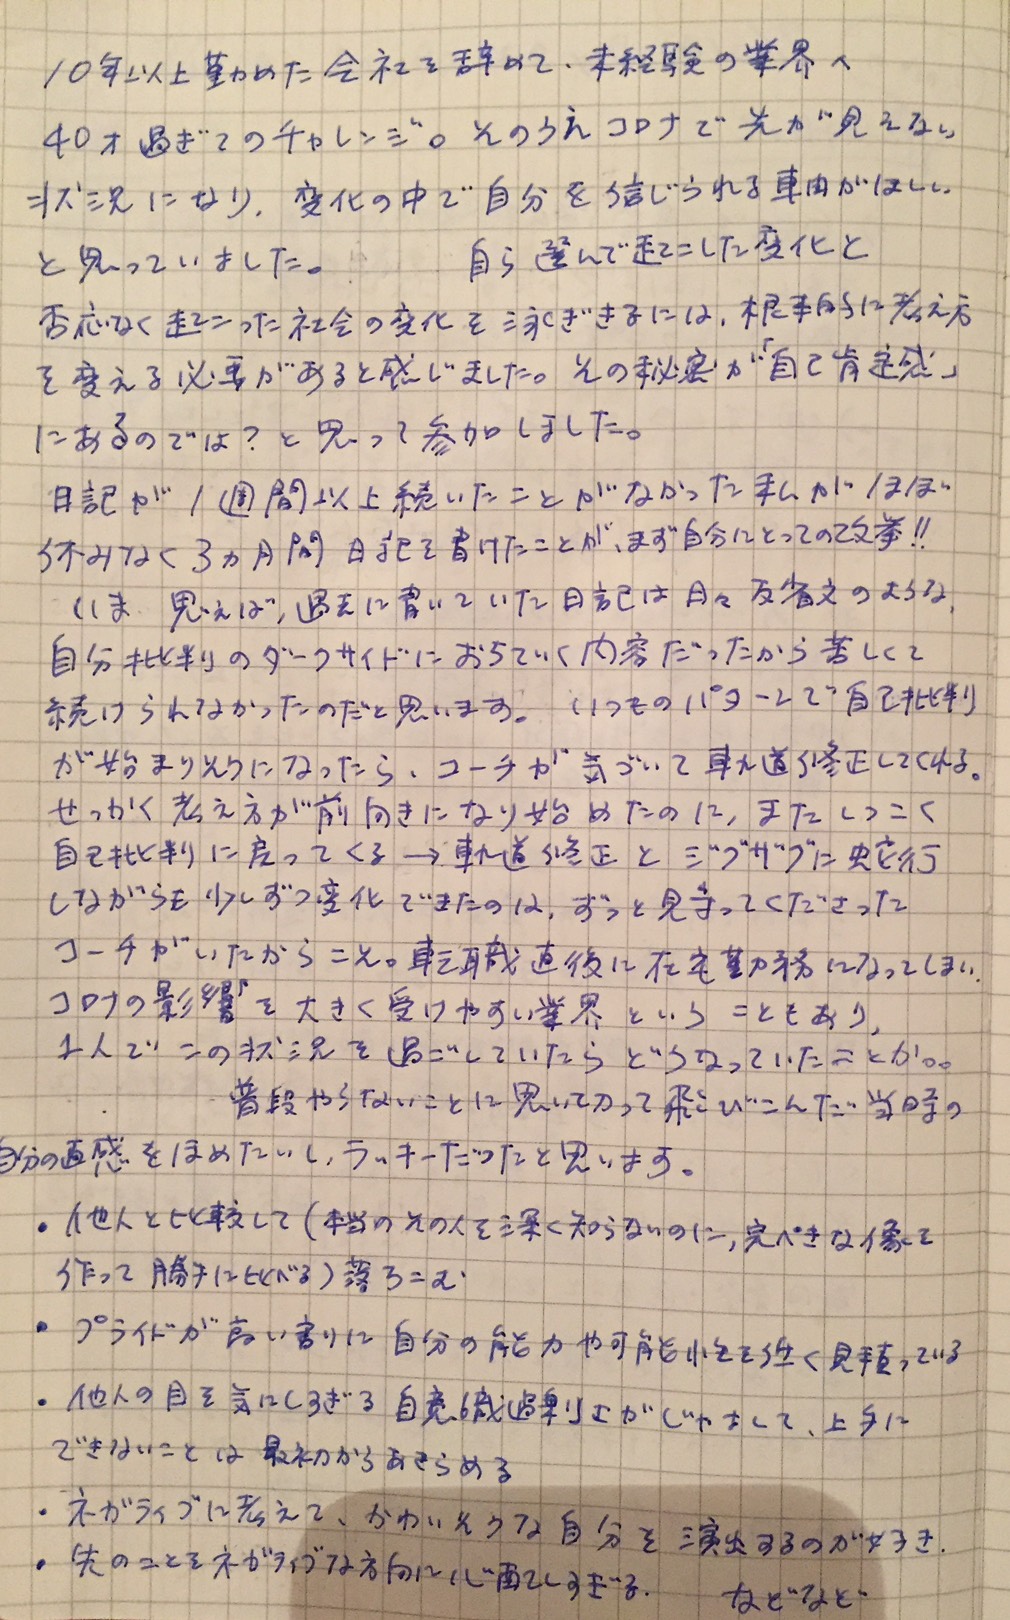 10年以上勤めた会社を辞めて、未経験の業界へ
40才過ぎてのチャレンジ。そのうえコロナで先が見えない
状況になり、変化の中で自分を信じられる軸がほしい
と思っていました。 自ら選んで起こした変化と
否応なく起こった社会の変化を泳ぎきるには、根本的に考え方
を変える必要があると感じました。その秘密が「自己肯定感」
にあるのでは?と思って参加しました。
日記が1週間以上続いたことがなかった私がほぼ
休みなく3ヵ月間日記を書けたことが、まず自分にとっての快挙!!
いま思えば、過去に書いていた日記は日々反省文のような、
自分批判のダークサイドにおちていく内容だったから苦しくて
続けられなかったのだと思います。いつものパターンで自己批判
が始まりそうになったら、コーチが気づいて軌道修正してくれる。
せっかく考え方が前向きになり始めたのに、またしつこく
自己批判に戻ってくる→軌道修正とジグザグに蛇行
しながらも少しずつ変化できたのは、ずっと見守ってくださった
コーチがいたからこそ。転職直後に在宅勤務になってしまい、
コロナの影響を大きく受けやすい業界ということもあり、
1人でこの状況を過ごしていたらどうなっていたことか。。
普段やらないことに思い切って飛びこんだ当時の
自分の直感をほめたいし、ラッキーだったと思います。
・他人と比較して(本当のその人を深く知らないのに、完ぺきな像を
作って勝手に比べる)落ちこむ
・プライドが高い割りに自分の能力や可能性を低く見積っている
・他人の目を気にしすぎる自意識過剰さがじゃまして、上手に
できないことは最初からあきらめる
・ネガティブに考えて、かわいそうな自分を演出するのが好き.
・先のことをネガティブな方向に心配しすぎる. などなど